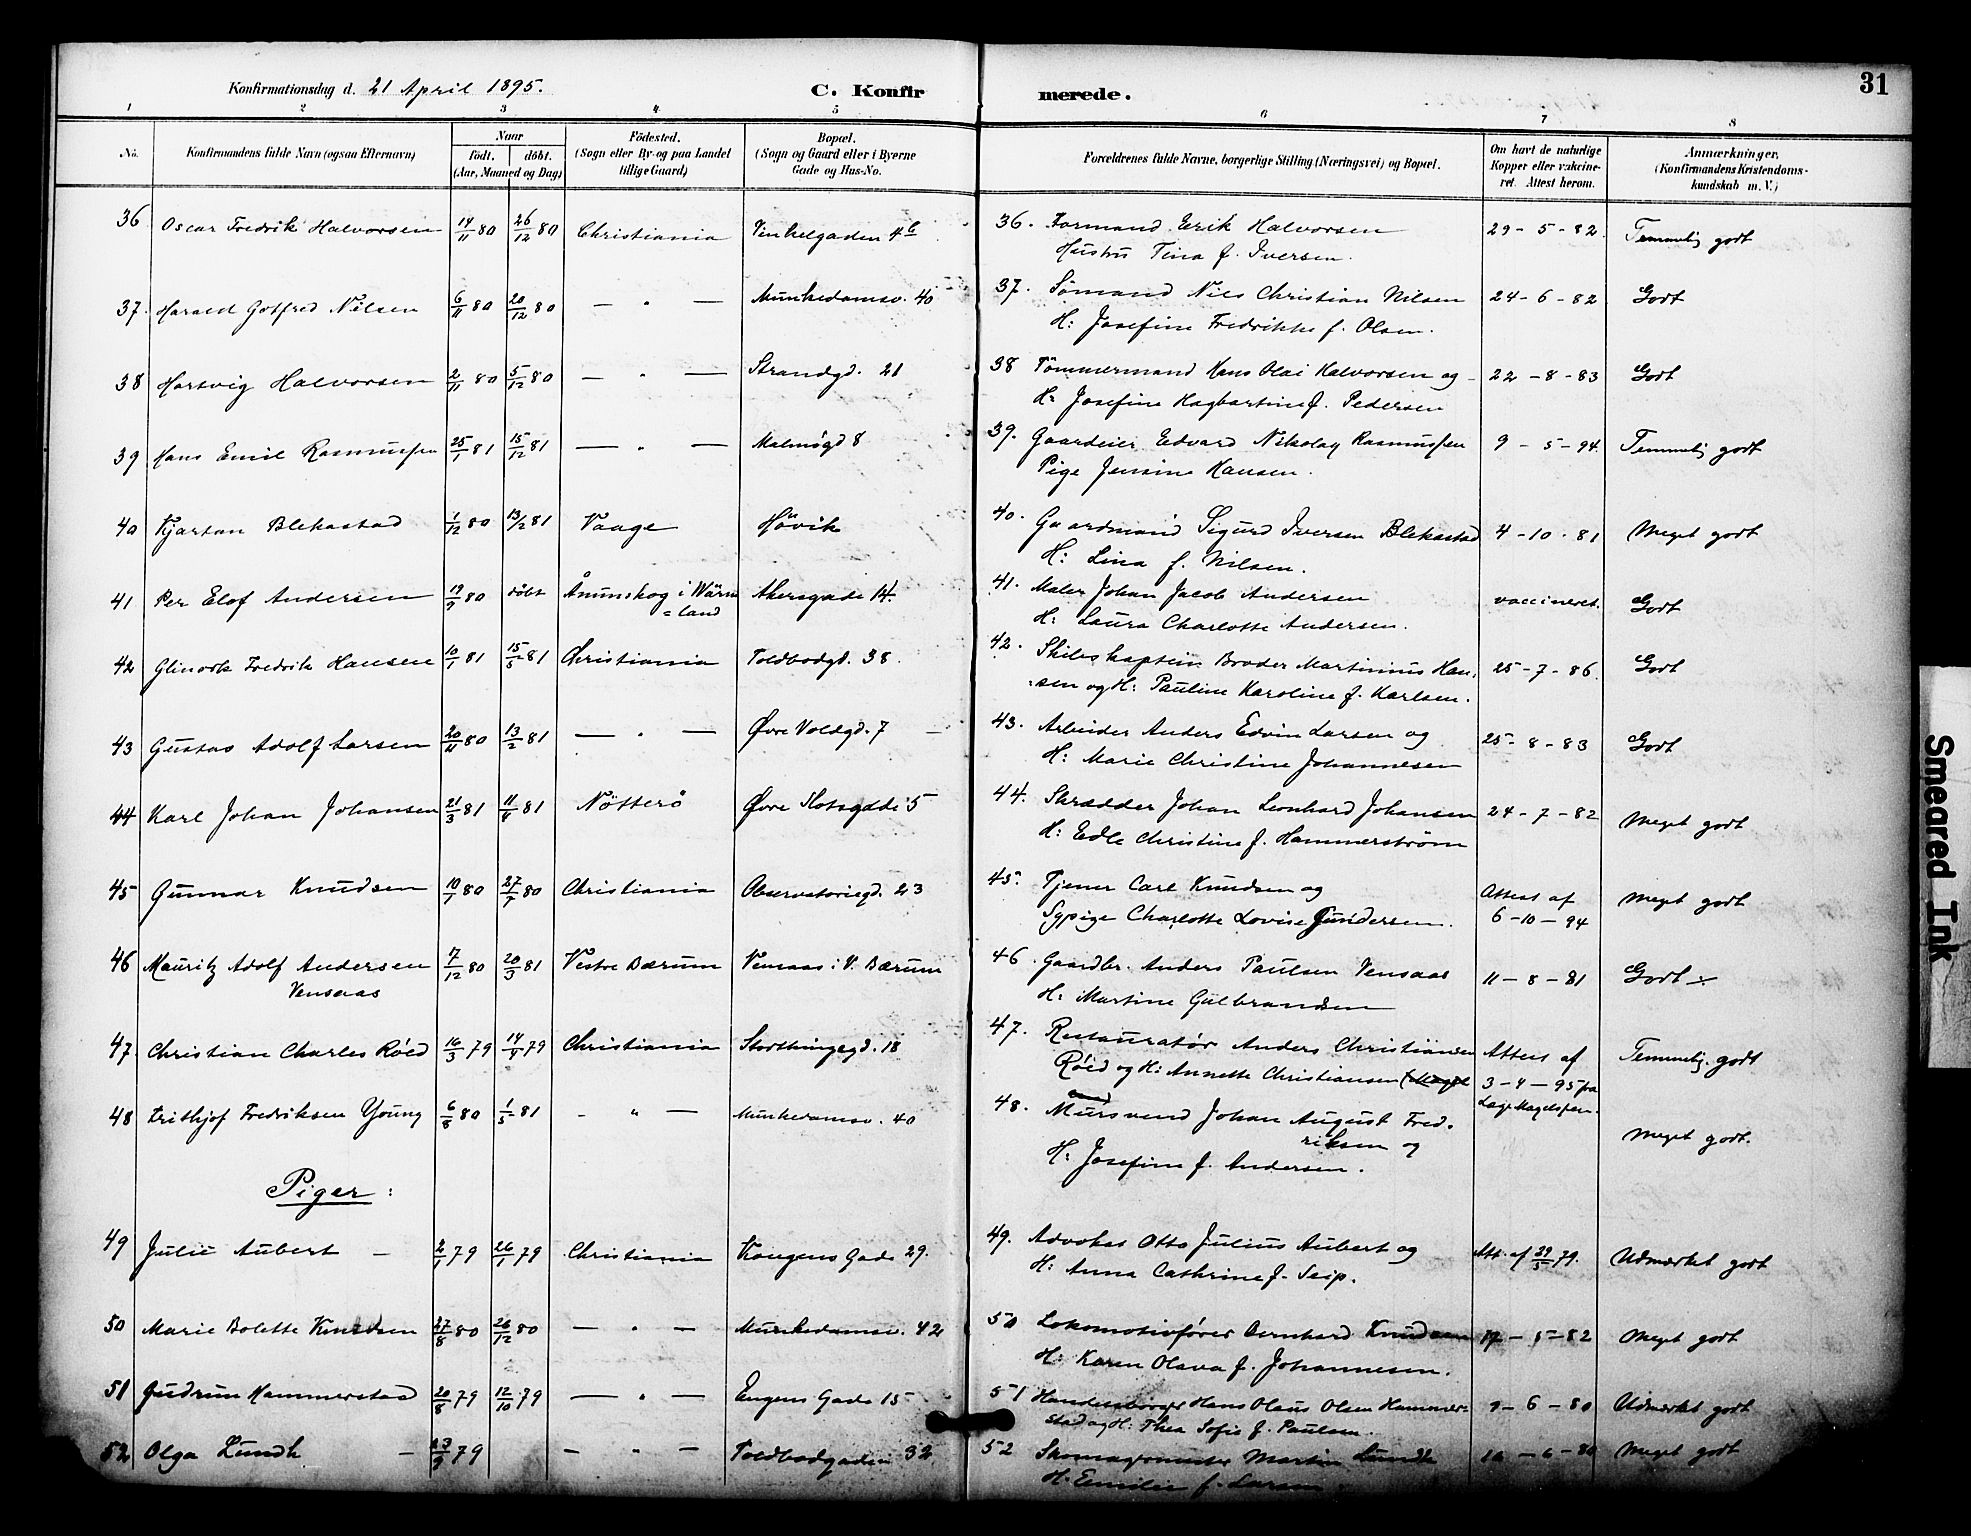 Konfirmationsdag d. 21 April 1895.
C. Konfirmerede.
31
1 2 3 4 5 6 7 8
No.
Konfirmandens fulde Navn (ogsaa Efternavn)
Naar
födt. döbt.
(Aar, Maaned og Dag)
Födested.
(Sogn eller By og paa Landet
tillige Gaard)
Bopæl.
(Sogn og Gaard eller i Byerne
Gade og Hus-No.
Forældrenes fulde Navne, borgerlige Stilling (Næringsvei) og Bopæl.
Om havt de naturlige
Kopper eller vakcine-
ret. Attest herom.
Anmærkninger,
(Konfirmandens Kristendoms-
kundskab m. V.)
36 Oscar Fredrik Halvorsen 14/11 80 26/12 80 Christiania Vinkelgaden 4b 36. Formand Erik Halvorsen 29-5-82. Temmelig godt
Hustru Tina f. Iversen.
37. Harald Gotfred Nilsen 6/11 80 20/12 80 — " — Munkedamsv. 40 37. Sömand Nils Christian Nilsen 24-6-82 Godt
H: Josefine Fredrikke f. Olsen.
38 Hartvig Halvorsen 2/11 80 5/12 80 — " — Strandgd. 21 38 Tömmermand Hans Olai Halvorsen og 22-8-83 Godt
H: Josefine Hagbartine f. Pedersen
39 Hans Emil Rasmussen 25/1 81 15/12 81 — " — Malmögd 8 39. Gaardeier Edvard Nikolay Rasmussen 9-5-94. Temmelig godt
Pige Jensine Hansen.
40 Kjartan Blekastad 1/12 80 13/2 81 Vaage Hövik 40. Gaardmand Sigurd Iversen Blekastad 4-10-81 Meget godt
H: Lina f. Nilsen.
41 Per Elof Andersen 19/9 80 döbt Ånimskog i Wärm Akersgade 14. 41. Maler Johan Jacob Andersen vaccineret. Godt
=land
H: Laura Charlotte Andersen.
42 Fredrik Hansen 10/1 81 15/5 81 Christiania Toldbodgd. 38. 42. Skibskaptein Broder Martinius Han- 25-7-86. Godt
sen og H: Pauline Karoline f. Karlsen.
43 Gustav Adolf Larsen 20/11 80 13/2 81 — " — Øvre Voldgd. 7 43. Arbeider Anders Edvin Larsen og 25-8-83 Godt
H: Marie Christine Johannesen
44 Karl Johan Johansen 21/3 81 11/4 81 Nötterö Øvre Slotsgade 5 44. Skrædder Johan Leonhard Johansen 24-7-82 Meget godt
H: Edle Christine f. Hammerstrøm
45 Gunnar Knudsen 10/1 80 27/7 80 Christiania Observatoriegd. 23 45. Tjener Carl Knudsen og Attest af Meget godt
Sypige Charlotte Lovise Gundersen. 6-10-94
46 Mauritz Adolf Andersen 7/12 80 20/3 81 Vestre Bærum Vensaas i V. Bærum 46. Gaardbr. Anders Paulsen Vensaas 11-8-81 Godt
Vensaas
H: Martine Gulbrandsen
47. Christian Charles Röed 16/3 79 14/4 79 Christiania Storthingsgd. 18 47. Restauratør Anders Christiansen Attest af Temmelig godt
Röed og H: Annette Christiansen 3-4-95 fra
Læge Magelssen.
48 Frithjof Fredriksen Young 6/8 80 1/5 81 - " — Munkedamsv. 40 48. Mursvend Johan August Fred-
riksen og Meget godt.
H: Josefine f. Andersen.
Piger:
49 Julie Aubert 2/1 79 26/1 79 Christiania Kongens Gade 29. 49. Advokat Otto Julius Aubert og Att. af 29/5 79. Udmærket godt
H: Anna Cathrine f. Seip.
50 Marie Bolette Knudsen 27/8 80 26/12 80 — " — Munkedamsv. 42 50 Lokomotivfører Bernhard Knudsen 17-5-82 Meget godt
H: Karen Olava f. Johannesen.
51 Gudrun Hammerstad 20/8 79 12/10 79 — " — Eugens Gade 15 51 Handelsborger Hans Olaus Olsen Hammer- 9-6-80 Udmærket godt
stad og H: Thea Sofie f. Paulsen.
52 Olga Lundh 23/9 79 — " — Toldbodgaden 32 52 Skomagermester Martin Lundh 16-6-80 Meget godt
H: Emilie f. Larsen.
Smeared Ink